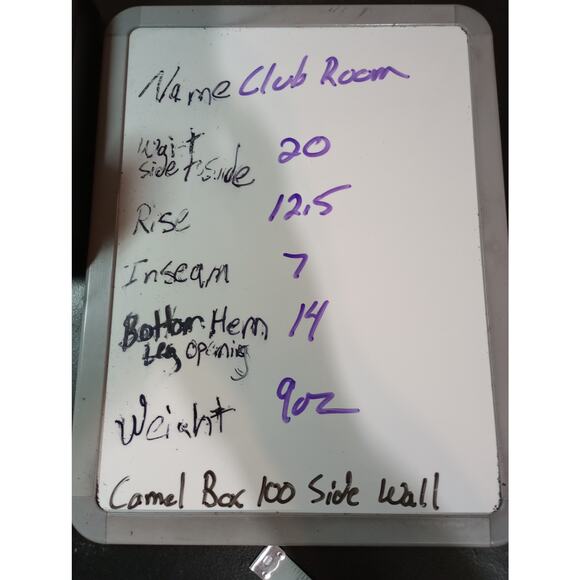 Name Club Room
Waist 20
side to side
Rise 12.5
Inseam 7
Bottom Hem 14
Leg Opening
Weight 9oz
Camel Box 100 Side Wall